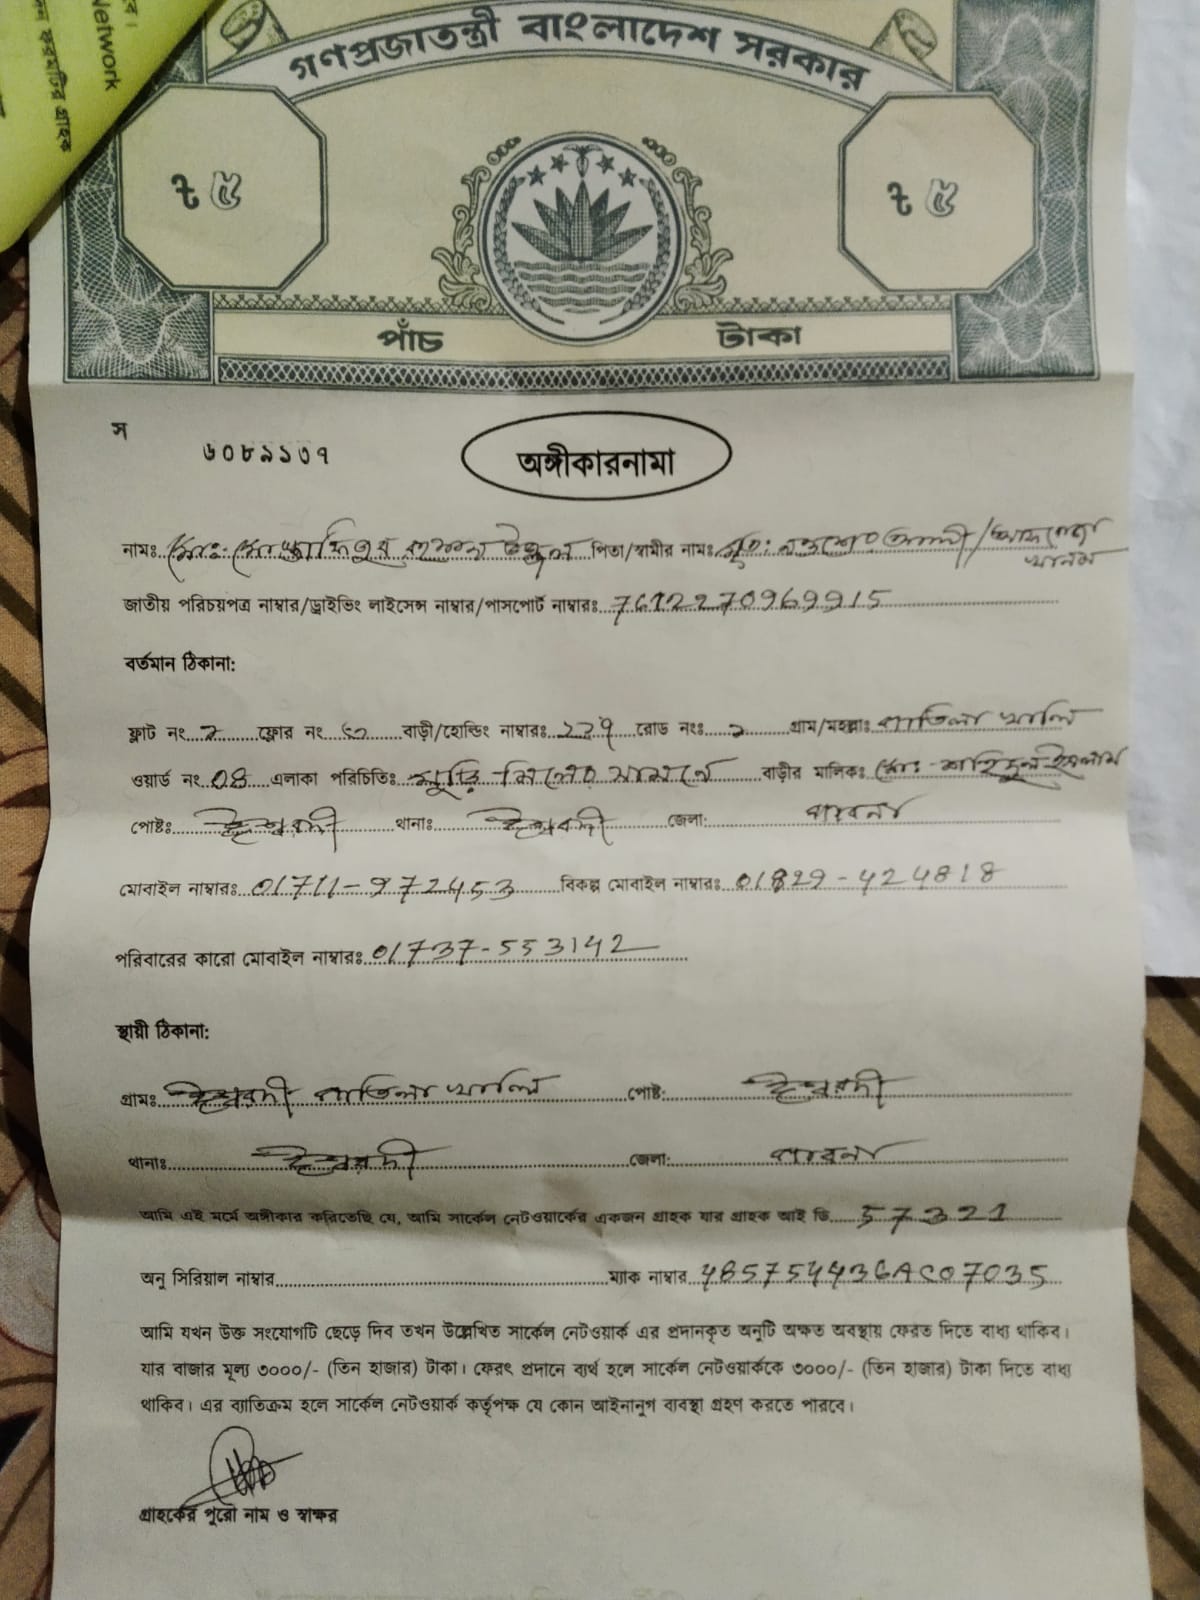 Network
গণপ্রজাতন্ত্রী বাংলাদেশ সরকার
৳ ৫ ৳ ৫
পাঁচ টাকা
স
৬০৮৯১৩৭
অঙ্গীকারনামা
নামঃ মোঃ পিতা/স্বামীর নামঃ মৃত:
জাতীয় পরিচয়পত্র নাম্বার/ড্রাইভিং লাইসেন্স নাম্বার/পাসপোর্ট নাম্বারঃ 7612270969915
বর্তমান ঠিকানা:
ফ্লাট নং ফ্লোর নং বাড়ী/হোল্ডিং নাম্বারঃ রোড নংঃ গ্রাম/মহল্লাঃ
ওয়ার্ড নং 04 এলাকা পরিচিতিঃ বাড়ীর মালিকঃ মোঃ শহিদুল ইসলাম
পোষ্টঃ ঈশ্বরদী থানাঃ ঈশ্বরদী জেলা: পাবনা
মোবাইল নাম্বারঃ 01711-972453 বিকল্প মোবাইল নাম্বারঃ 01829-424818
পরিবারের কারো মোবাইল নাম্বারঃ 01737-553142
স্থায়ী ঠিকানা:
গ্রামঃ ঈশ্বরদী পোষ্ট: ঈশ্বরদী
থানাঃ ঈশ্বরদী জেলা: পাবনা
আমি এই মর্মে অঙ্গীকার করিতেছি যে, আমি সার্কেল নেটওয়ার্কের একজন গ্রাহক যার গ্রাহক আই ডি 57321
অনু সিরিয়াল নাম্বার ম্যাক নাম্বার 485754436AC07035
আমি যখন উক্ত সংযোগটি ছেড়ে দিব তখন উল্লেখিত সার্কেল নেটওয়ার্ক এর প্রদানকৃত অনুটি অক্ষত অবস্থায় ফেরত দিতে বাধ্য থাকিব।
যার বাজার মূল্য ৩০০০/- (তিন হাজার) টাকা। ফেরৎ প্রদানে ব্যর্থ হলে সার্কেল নেটওয়ার্ককে ৩০০০/- (তিন হাজার) টাকা দিতে বাধ্য
থাকিব। এর ব্যাতিক্রম হলে সার্কেল নেটওয়ার্ক কর্তৃপক্ষ যে কোন আইনানুগ ব্যবস্থা গ্রহণ করতে পারবে।
গ্রাহকের পুরো নাম ও স্বাক্ষর